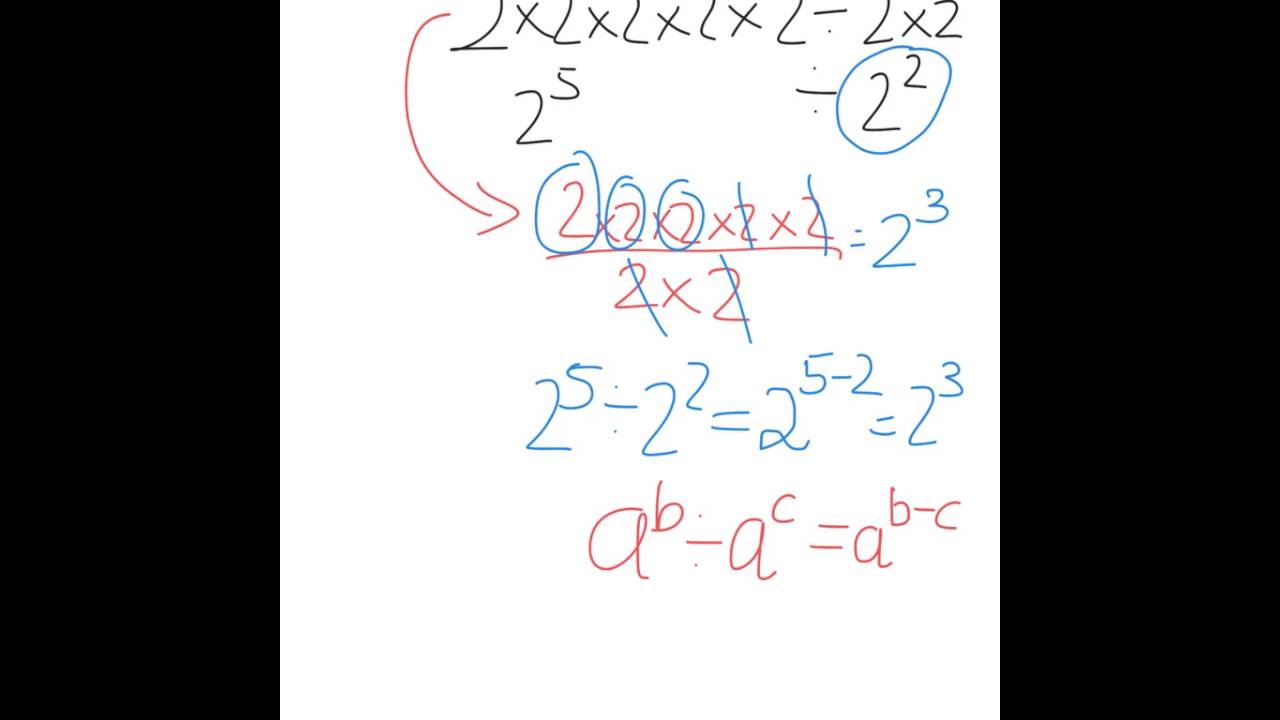 2×2×2×2×2÷2×2
2⁵ ÷ 2²
2×2×2×2×2 = 2³
2×2
2⁵÷2²=2⁵⁻²=2³
aᵇ÷aᶜ=aᵇ⁻ᶜ